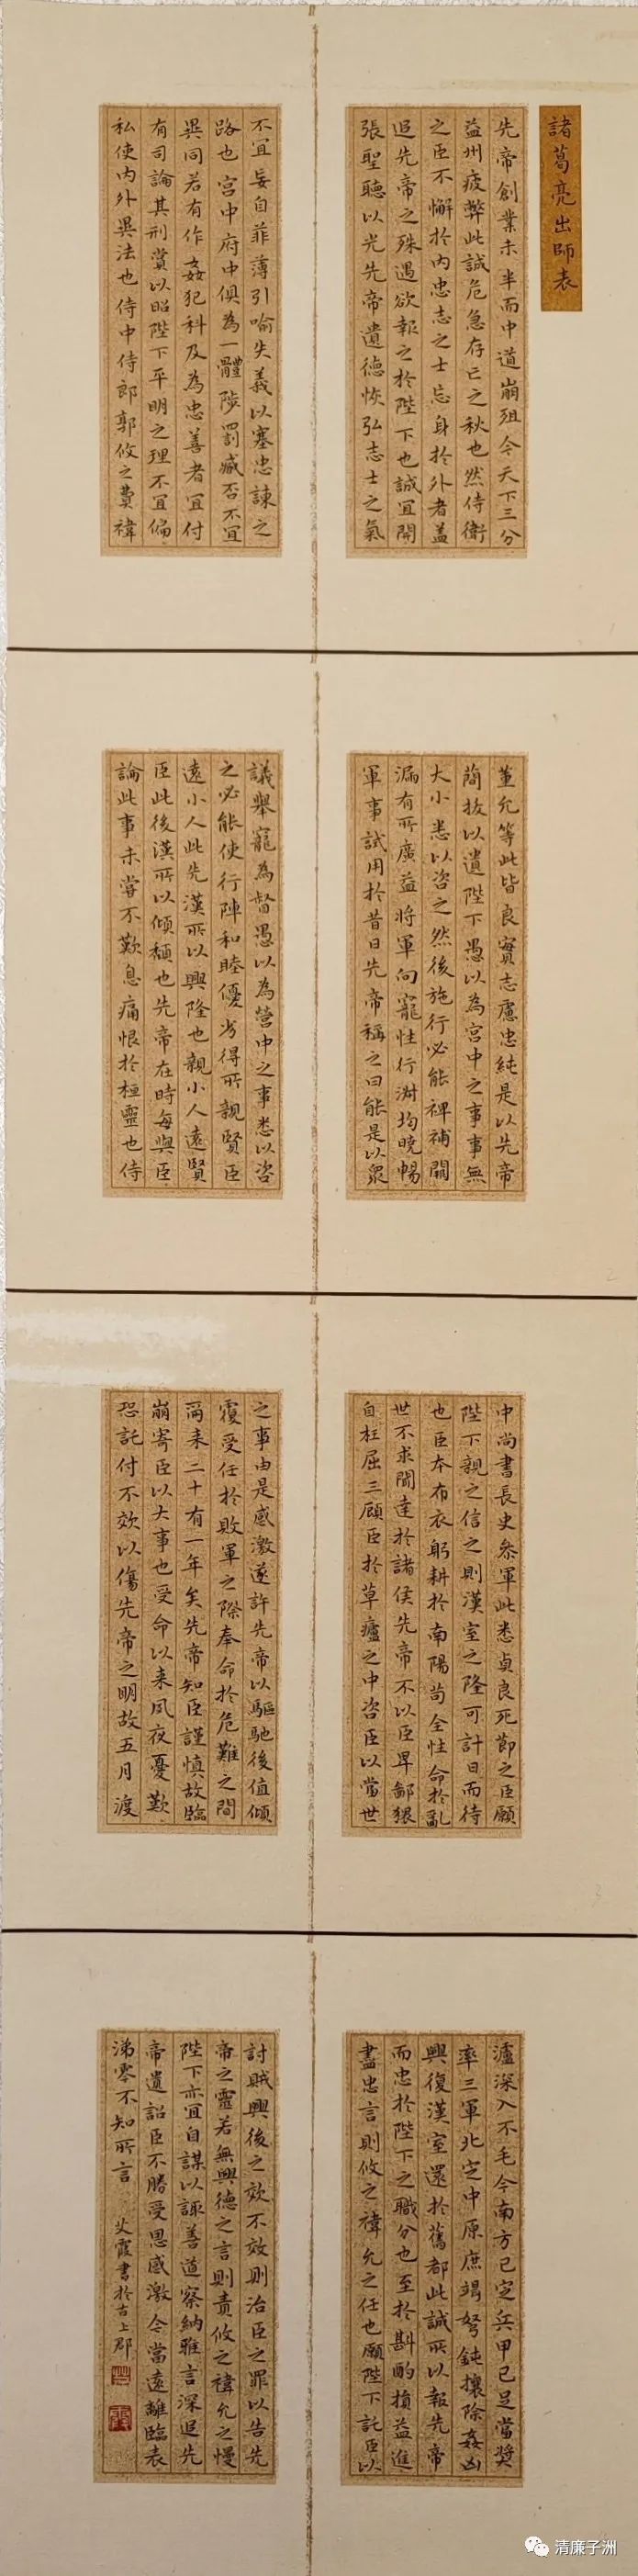 諸葛亮出師表
先帝創業未半而中道崩殂今天下三分
益州疲弊此誠危急存亡之秋也然侍衛
之臣不懈於內忠志之士忘身於外者蓋
追先帝之殊遇欲報之於陛下也誠宜開
張聖聽以光先帝遺德恢弘志士之氣
不宜妄自菲薄引喻失義以塞忠諫之
路也宮中府中俱為一體陟罰臧否不宜
異同若有作姦犯科及為忠善者宜付
有司論其刑賞以昭陛下平明之理不宜偏
私使內外異法也侍中侍郎郭攸之費禕
董允等此皆良實志慮忠純是以先帝
簡拔以遺陛下愚以為宮中之事事無
大小悉以咨之然後施行必能裨補闕
漏有所廣益將軍向寵性行淑均曉暢
軍事試用於昔日先帝稱之曰能是以眾
議舉寵為督愚以為營中之事悉以咨
之必能使行陣和睦優劣得所親賢臣
遠小人此先漢所以興隆也親小人遠賢
臣此後漢所以傾頹也先帝在時每與臣
論此事未嘗不歎息痛恨於桓靈也侍
中尚書長史參軍此悉貞良死節之臣願
陛下親之信之則漢室之隆可計日而待
也臣本布衣躬耕於南陽苟全性命於亂
世不求聞達於諸侯先帝不以臣卑鄙猥
自枉屈三顧臣於草廬之中咨臣以當世
之事由是感激遂許先帝以驅馳後值傾
覆受任於敗軍之際奉命於危難之間
爾來二十有一年矣先帝知臣謹慎故臨
崩寄臣以大事也受命以來夙夜憂歎
恐託付不效以傷先帝之明故五月渡
瀘深入不毛今南方已定兵甲已足當獎
率三軍北定中原庶竭駑鈍攘除姦凶
興復漢室還於舊都此誠所以報先帝
而忠於陛下之職分也至於斟酌損益進
盡忠言則攸之禕允之任也願陛下託臣以
討賊興復之效不效則治臣之罪以告先
帝之靈若無興德之言則責攸之禕允之慢
陛下亦宜自謀以諏善道察納雅言深追先
帝遺詔臣不勝受恩感激今當遠離臨表
涕零不知所言 艾霞書於古上郡
清廉子洲